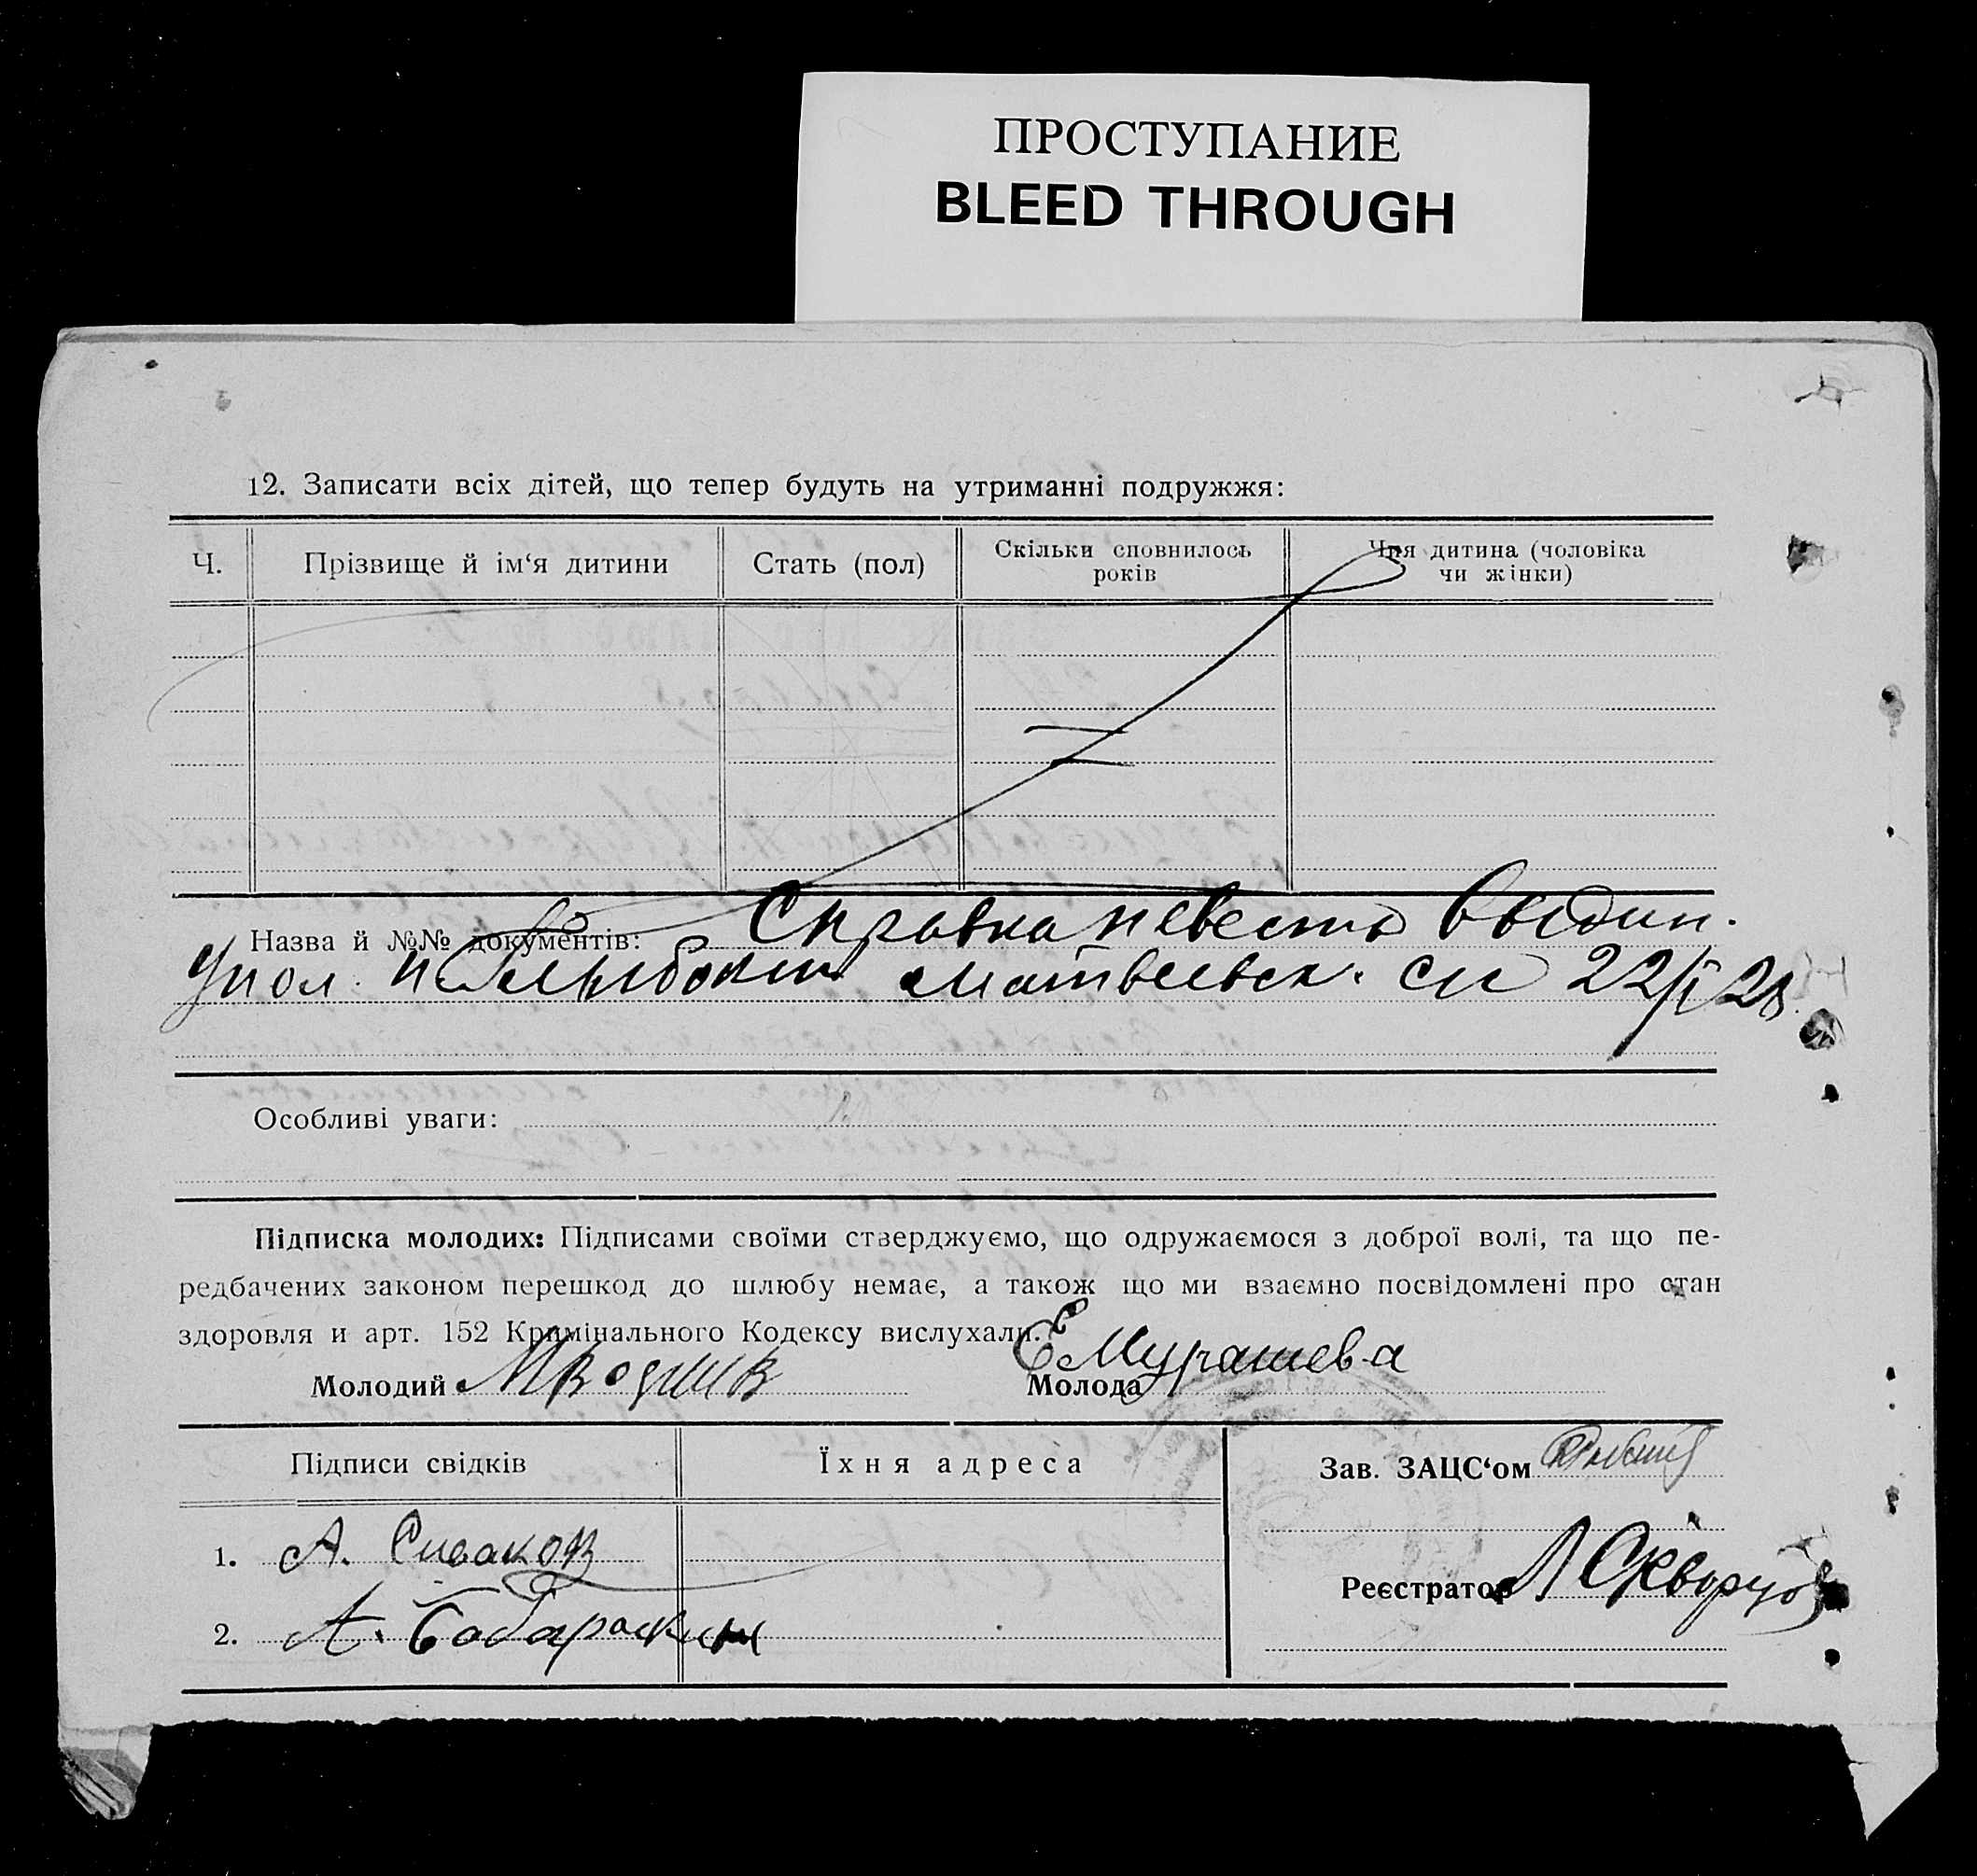 ПРОСТУПАНИЕ
BLEED THROUGH
12. Записати всіх дітей, що тепер будуть на утриманні подружжя:
Ч. Прізвище й ім‘я дитини Стать (пол) Скільки сповнилось років Чия дитина (чоловіка чи жінки)
Назва й №№ документів: Справка невесты выдан.
упол. Матвеевск. 22/I 28
Особливі уваги:
Підписка молодих: Підписами своїми стверджуємо, що одружаємося з доброї волі, та що пе-
редбачених законом перешкод до шлюбу немає, а також що ми взаємно посвідомлені про стан
здоровля и арт. 152 Кримінального Кодексу вислухали.
Молодий Молода Е Мурашева
Підписи свідків Їхня адреса Зав. ЗАЦС‘ом
1. А. Сиваков
Реєстратор Л Скворцов
2. А.